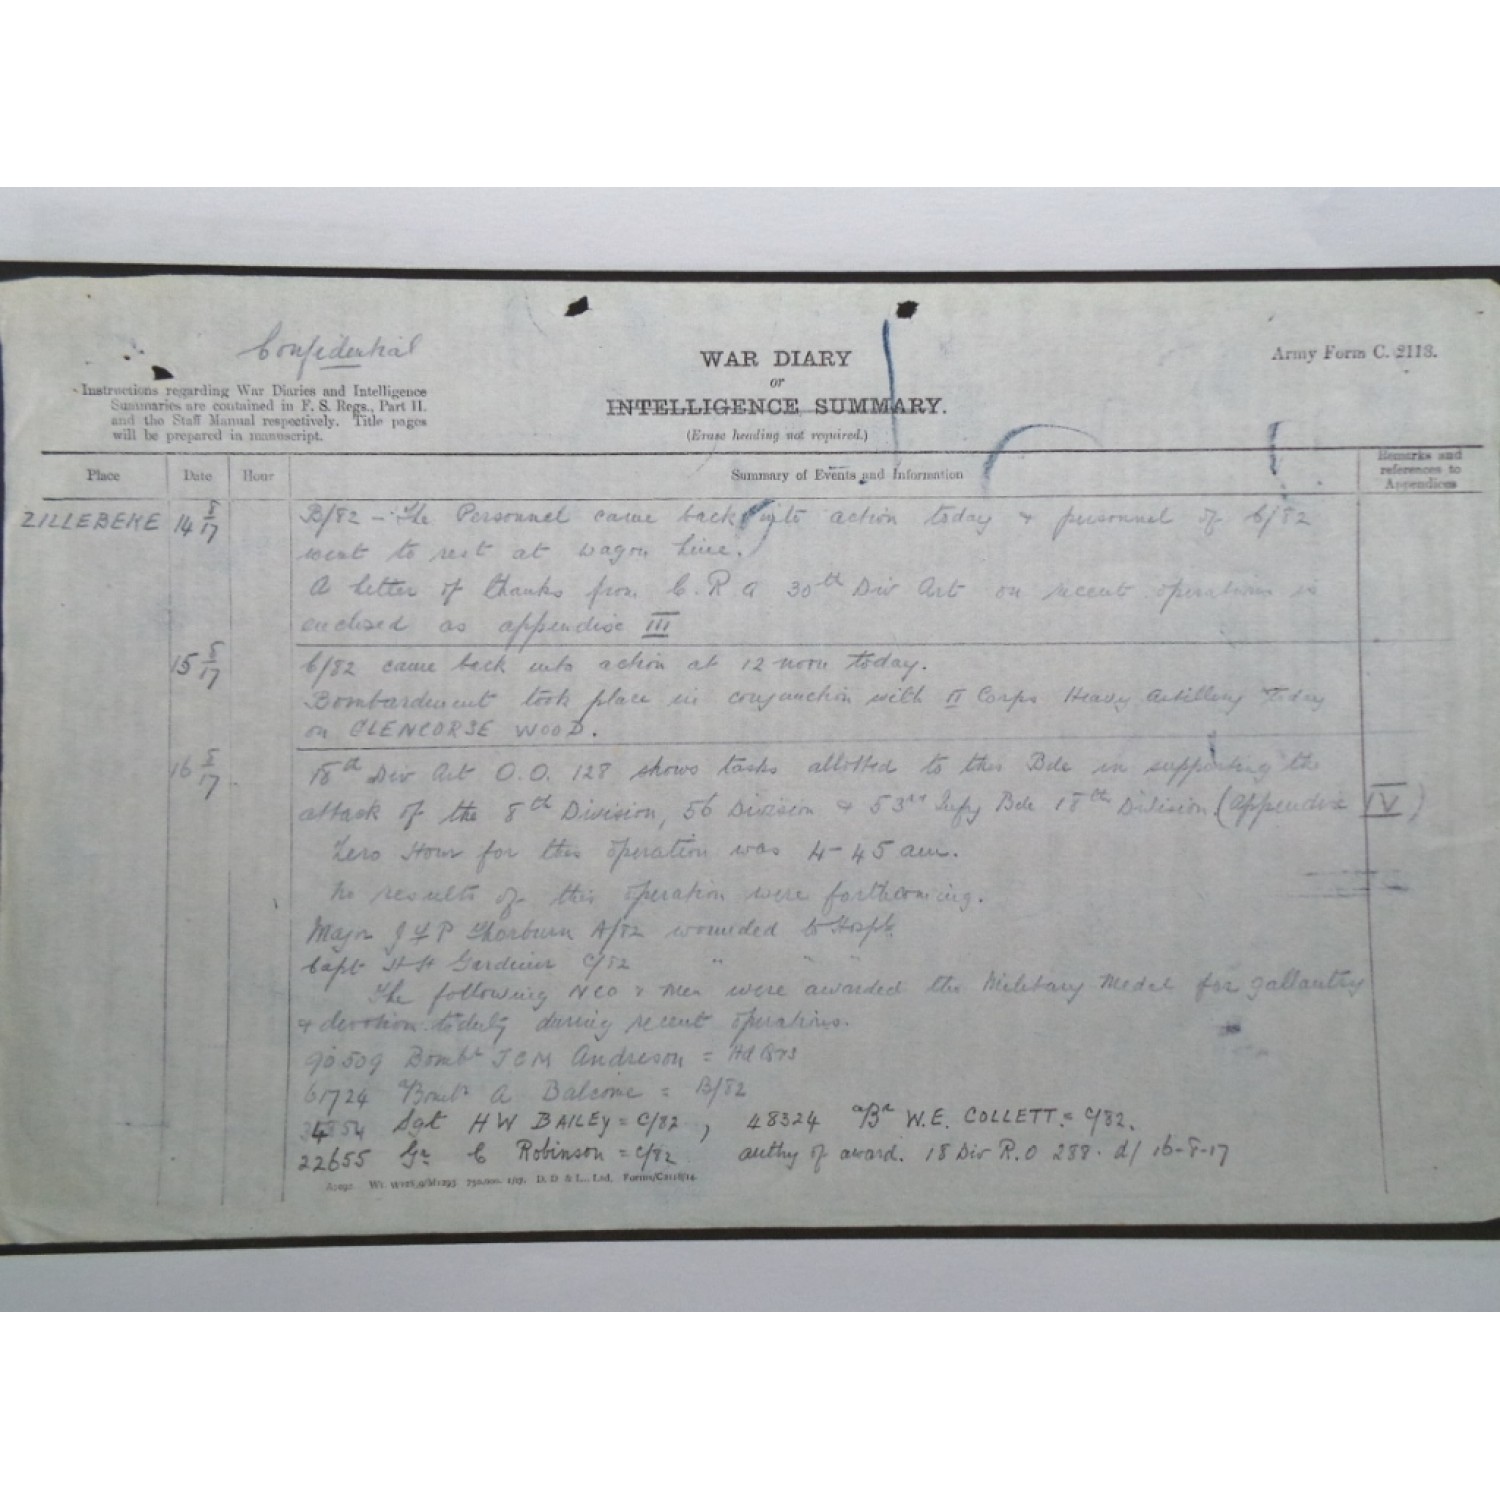 Confidential
WAR DIARY
or
INTELLIGENCE SUMMARY.
(Erase heading not required.)
Army Form C. 2118.
Instructions regarding War Diaries and Intelligence
Summaries are contained in F. S. Regs., Part II.
and the Staff Manual respectively. Title pages
will be prepared in manuscript.
Place Date Hour Summary of Events and Information Remarks and references to Appendices
ZILLEBEKE 14 8/17 B/82 - The Personnel came back into action today & personnel of C/82
went to rest at wagon line.
A letter of thanks from C.R.A 30th Div Art on recent operations is
enclosed as appendix III
15 8/17 C/82 came back into action at 12 noon today.
Bombardment took place in conjunction with II Corps Heavy Artillery today
on GLENCORSE WOOD.
16 8/17 18th Div Art O.O. 128 shows tasks allotted to this Bde in supporting the
attack of the 8th Division, 56 Division & 53rd Infy Bde 18th Division (Appendix IV)
Zero Hour for this operation was 4-45 am.
No results of this operation were forthcoming.
Major J F P Thorburn A/82 wounded to Hospl.
Capt H H Gardiner C/82 " " "
The following NCO & Men were awarded the Military Medal for gallantry
& devotion to duty during recent operations.
90509 Bombr J C M Andreson = Hd Qrs
Bombr A Balcome = B/82
Sgt H W BAILEY = C/82, 48324 a/Br W.E. COLLETT = C/82.
22655 Gr C Robinson = C/82 authy of award. 18 Div R.O 288. d/ 16-8-17
D. D & L., Ltd.